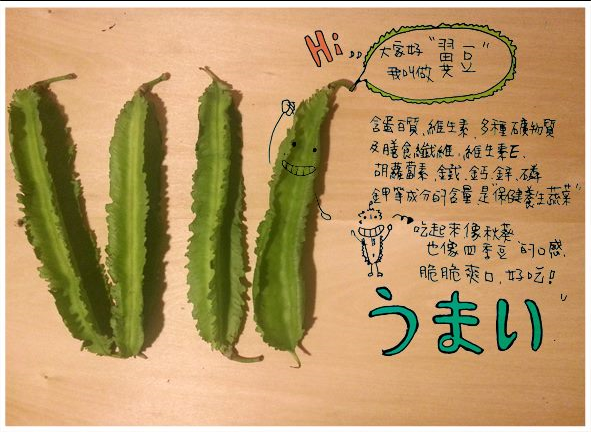 Hi
大家好"翼豆"
我叫做
含蛋白質、維生素、多種礦物質
及膳食纖維、維生素E、
胡蘿蔔素、鐵、鈣、鋅、磷
鉀等成分的含量是"保健養生蔬菜"
吃起來像秋葵
也像四季豆"的口感、
脆脆爽口、好吃!
うまい